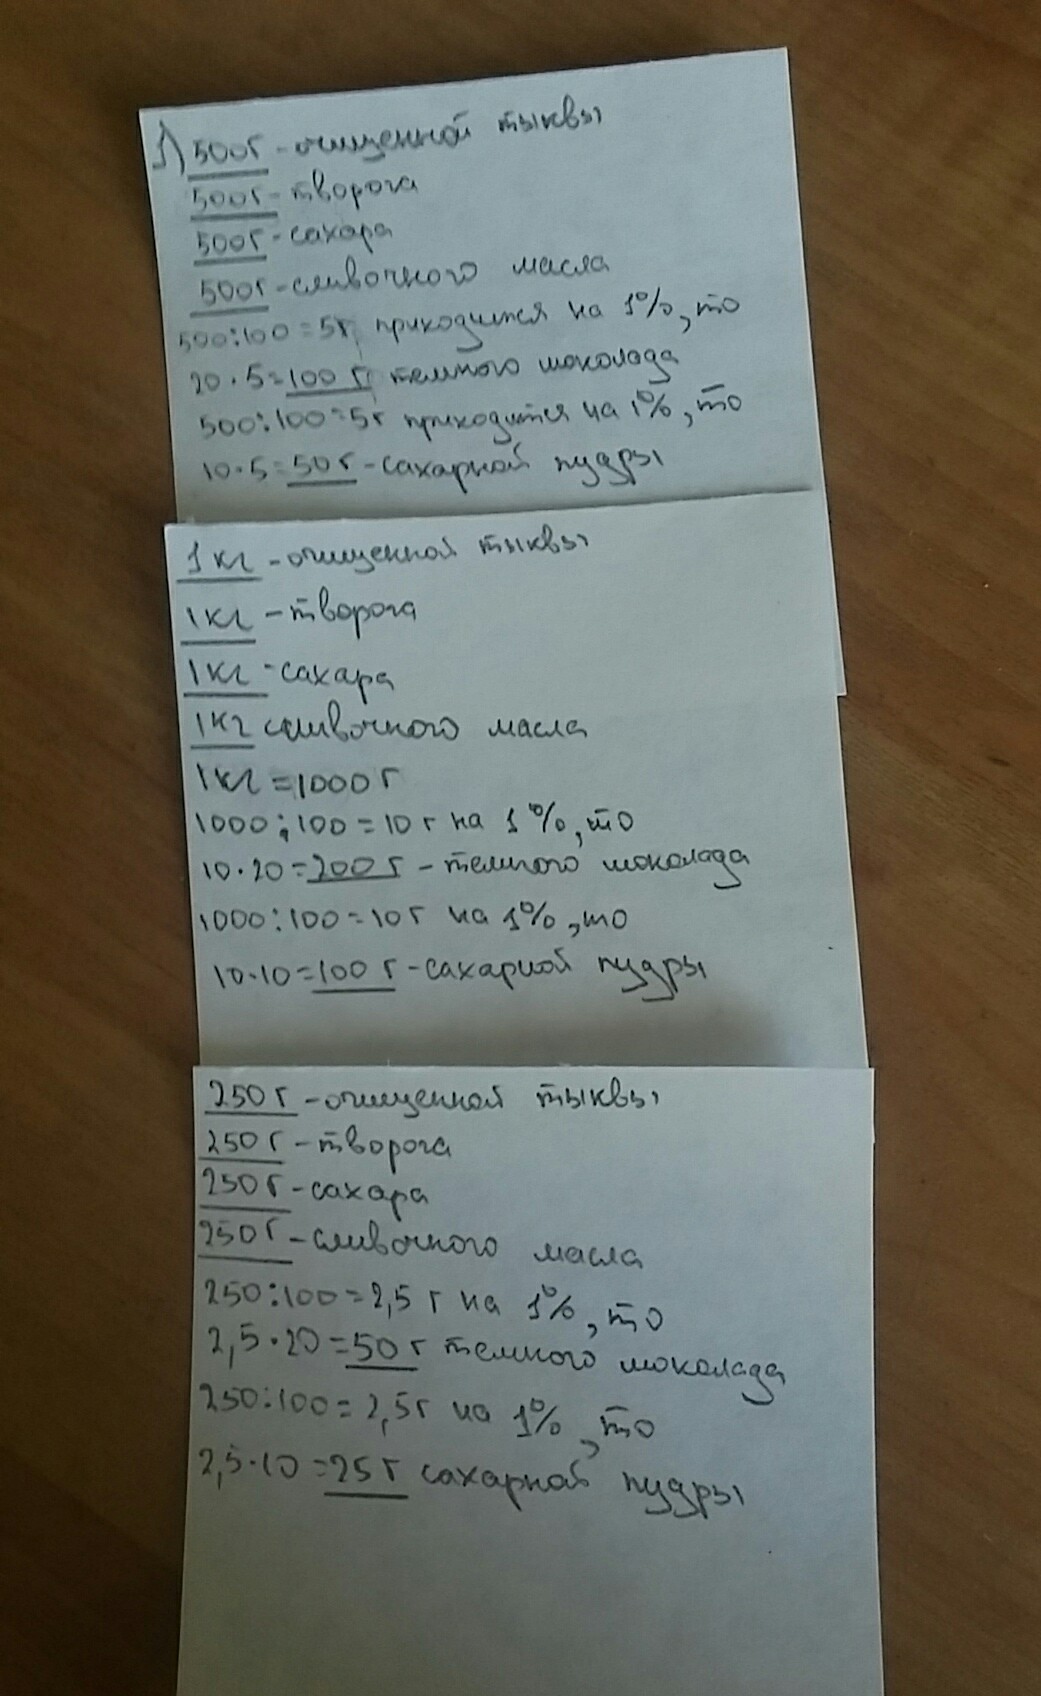 1) 500г - очищенной тыквы
500г - творога
500г - сахара
500г - сливочного масла
500:100=5г приходится на 1%, то
20·5=100 г темного шоколада
500:100=5г приходится на 1%, то
10·5=50г - сахарной пудры
1кг - очищенной тыквы
1кг - творога
1кг - сахара
1кг сливочного масла
1кг = 1000 г
1000:100=10 г на 1%, то
10·20=200 г - темного шоколада
1000:100=10г на 1%, то
10·10=100 г - сахарной пудры
250г - очищенной тыквы
250г - творога
250г - сахара
250г - сливочного масла
250:100=2,5 г на 1%, то
2,5·20=50 г темного шоколада
250:100=2,5г на 1%, то
2,5·10=25 г сахарной пудры